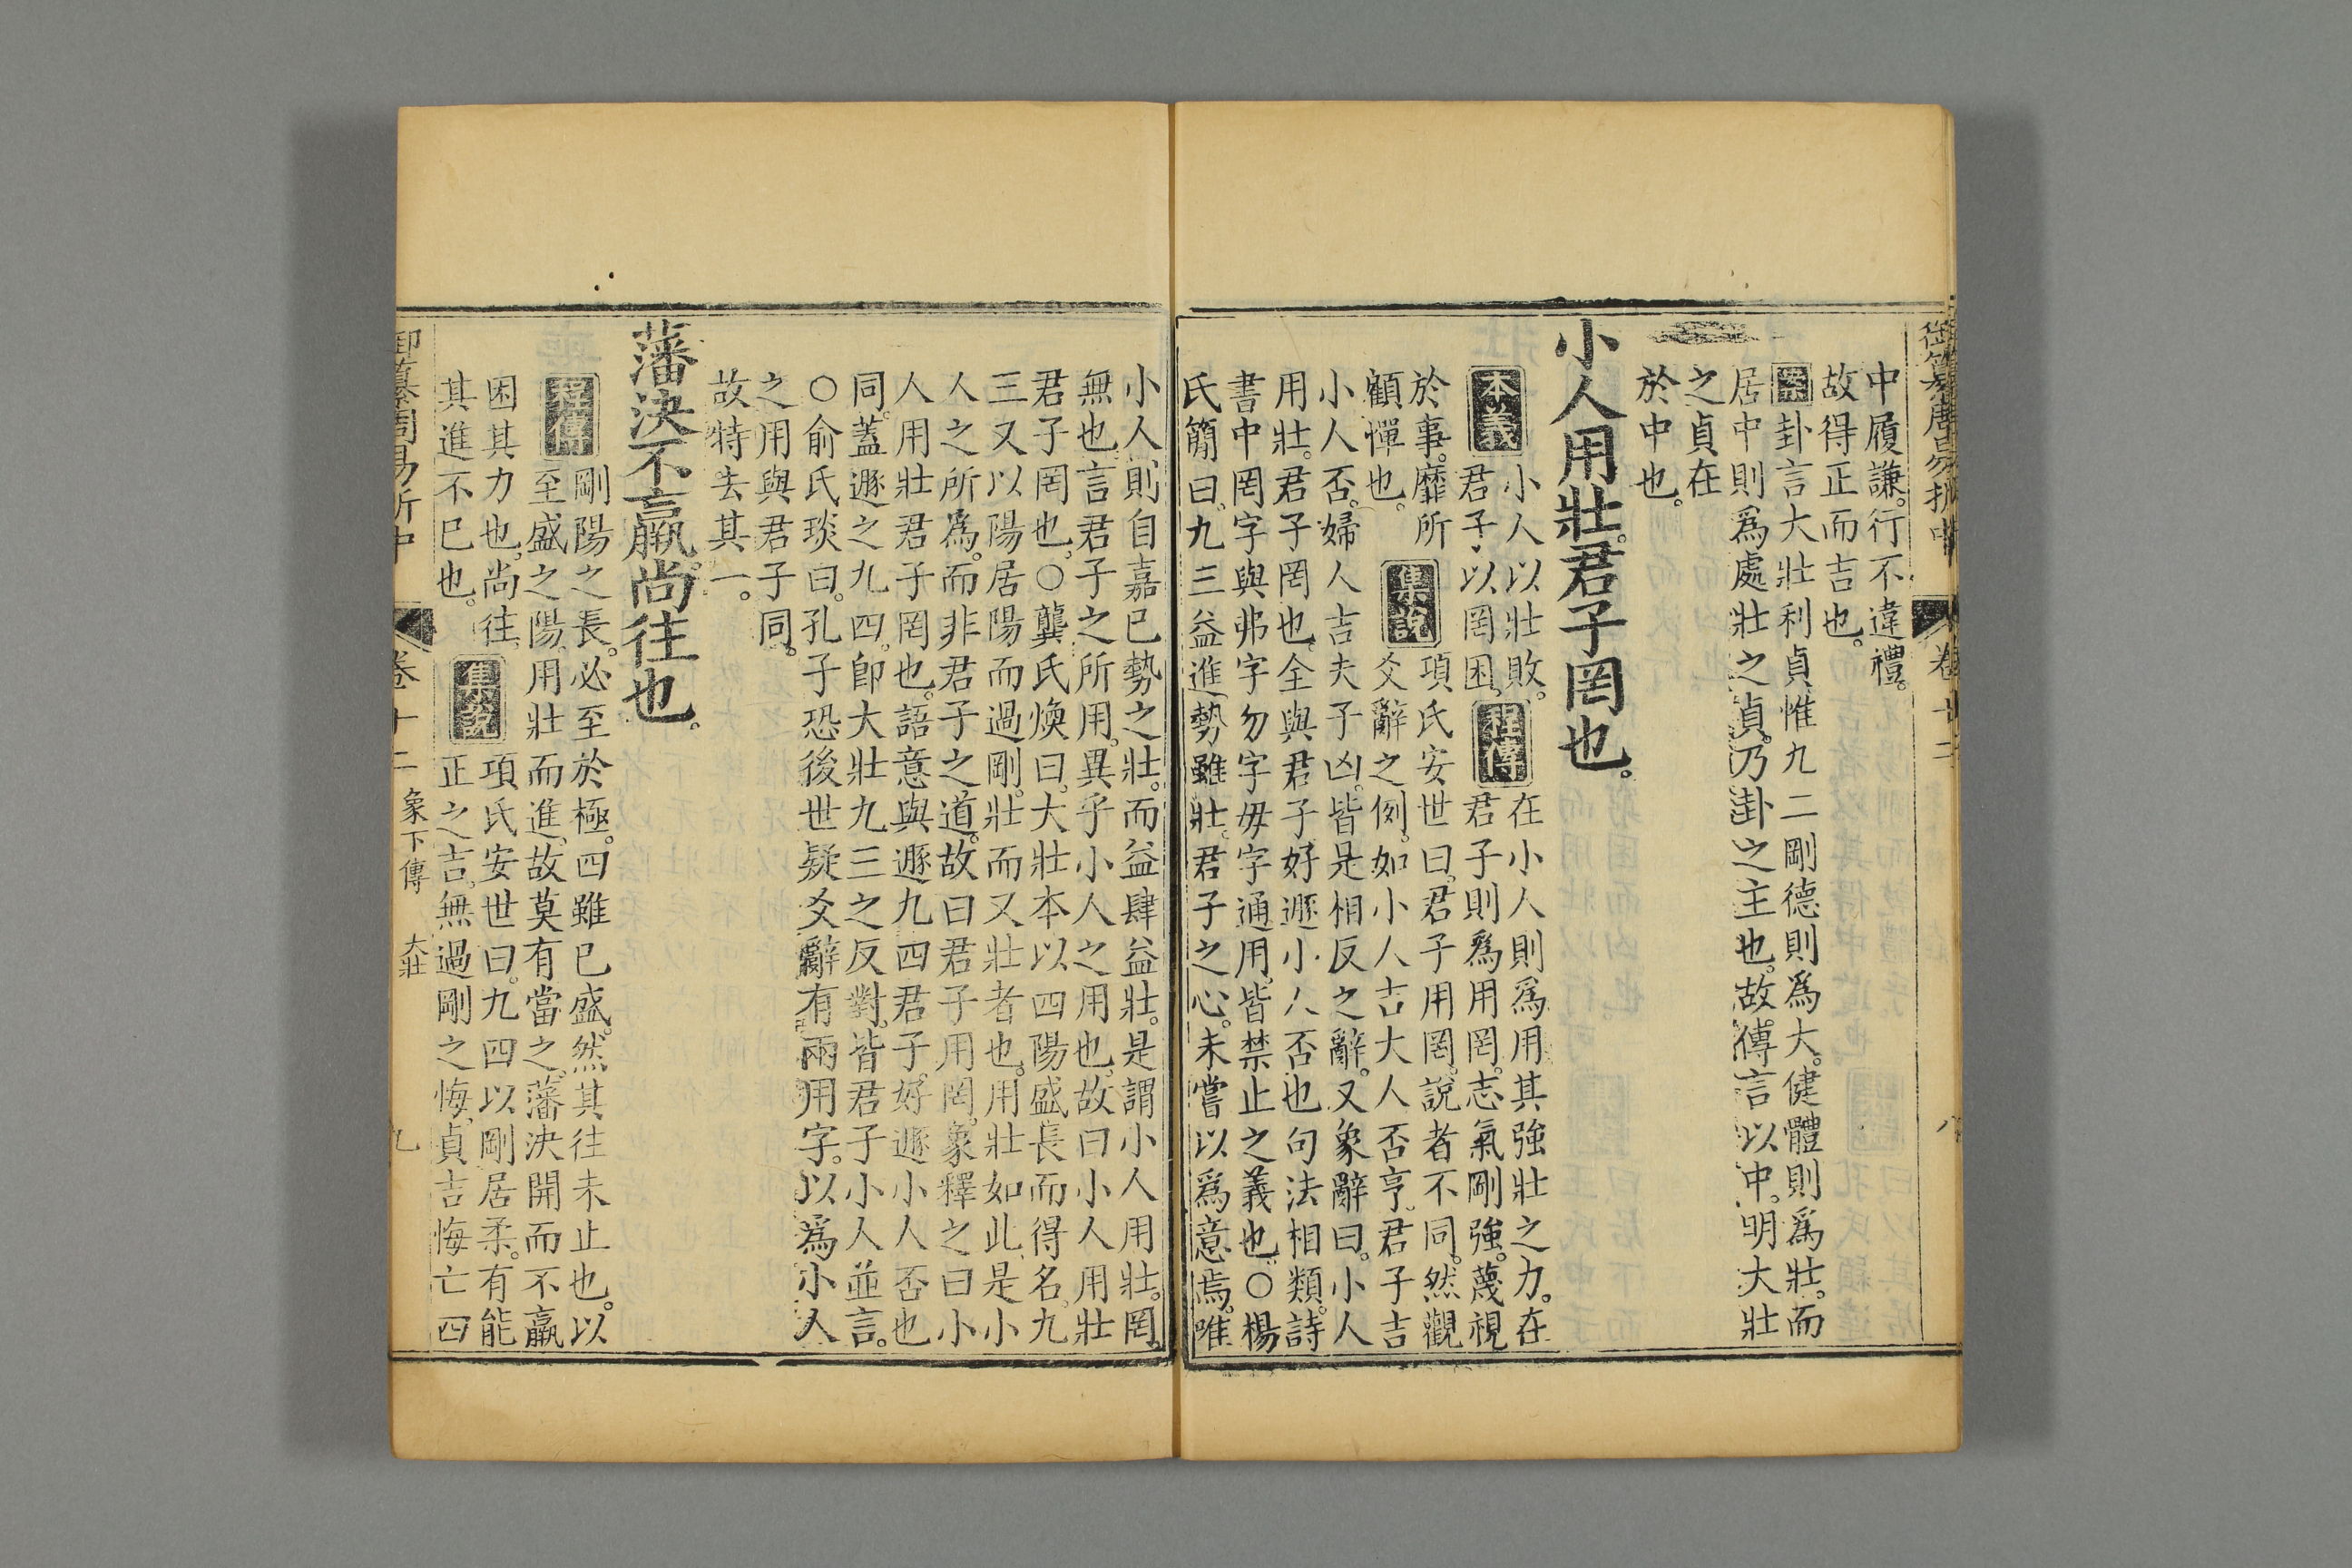 御纂周易折中 卷十二 八
中履謙。行不違禮。
故得正而吉也。
案卦言大壯利貞惟九二剛德則為大。健體則爲壯。而
居中則爲處壯之貞。乃卦之主也。故傳言以中。明大壯
之貞在
於中也。
小人用壯。君子罔也。
本義
小人以壯敗。
君子以罔困。
程傳
在小人則爲用其強壯之力。在
君子則爲用罔。志氣剛強。蔑視
於事。靡所
顧憚也。
集說
項氏安世曰。君子用罔。說者不同。然觀
爻辭之例。如小人吉大人否亨。君子吉
小人否。婦人吉夫子凶。皆是相反之辭。又象辭曰。小人
用壯。君子罔也。全與君子好遯小人否也句法相類。詩
書中罔字與弗字勿字毋字通用。皆禁止之義也。○楊
氏簡曰。九三益進勢雖壯。君子之心。未嘗以爲意焉。唯
小人則自嘉己勢之壯。而益肆益壯。是謂小人用壯。罔。
無也。言君子之所用。異乎小人之用也。故曰小人用壯
君子罔也。○龔氏煥曰。大壯本以四陽盛長而得名。九
三又以陽居陽而過剛。壯而又壯者也。用壯如此。是小
人之所爲。而非君子之道。故曰君子用罔。象釋之曰小
人用壯君子罔也。語意與遯九四君子。好遯小人否也
同。蓋遯之九四。卽大壯九三之反對。皆君子小人並言。
○俞氏琰曰。孔子恐後世疑爻辭有兩用字。以爲小人
之用與君子同。
故特去其一。
藩決不羸。尚往也。
程傳
剛陽之長。必至於極。四雖已盛。然其往未止也。以
至盛之陽。用壯而進。故莫有當之。藩決開而不羸
困其力也。尚往。
其進不已也。
集說
項氏安世曰。九四以剛居柔。有能
正之吉。無過剛之悔。貞吉悔亡四
御纂周易折中 卷十二 象下傳 大壯 九